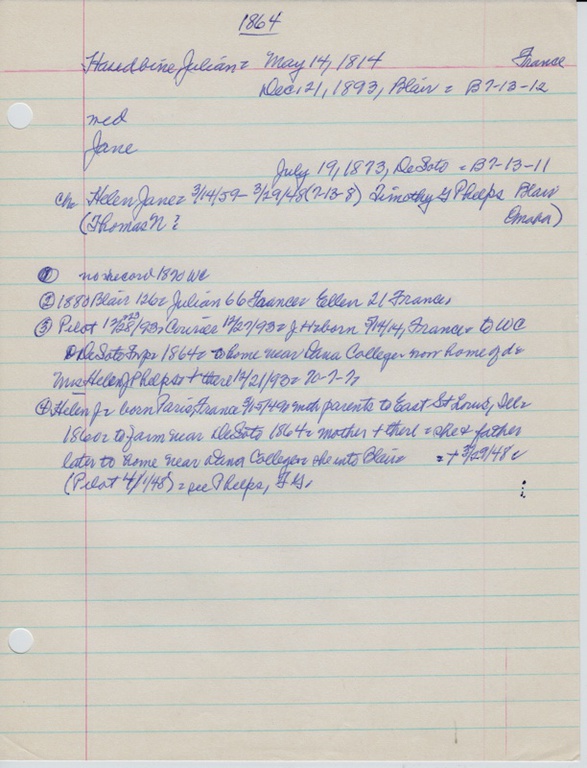 1864
Julian = May 14, 1814 France
Dec. 21, 1893, Blair = B7-13-12
med
Jane
July 19, 1873, DeSoto = B7-13-11
Ch= Helen Jane = 3/14/59 - 3/29/48 (7-13-8) Timothy G Phelps Blair
(Thomas N ? Omaha)
① no record 1870 WC
② 1880 Blair 126 = Julian 66 France = Ellen 21 France,
③ Pilot 12/28/93, Courier 12/27/93 = J. H born 5/14/14, France = to WC
DeSoto Twp 1864 = to home near Dana College = now home of d=
Mrs Helen J Phelps = + there 12/21/93 = 70-7-7
④ Helen J = born Paris, France 3/15/49 = with parents to East St Louis, Ill =
1860 = to farm near DeSoto 1864 = mother + there = she & father
later to home near Dana College = she into Blair = = + 3/29/48 =
(Pilot 4/1/48) = see Phelps, T G,